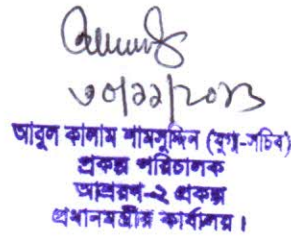 ৩০/১১/২০১৩
আবুল কালাম শামসুদ্দিন (যুগ্ম-সচিব)
প্রকল্প পরিচালক
আশ্রয়ণ-২ প্রকল্প
প্রধানমন্ত্রীর কার্যালয়।